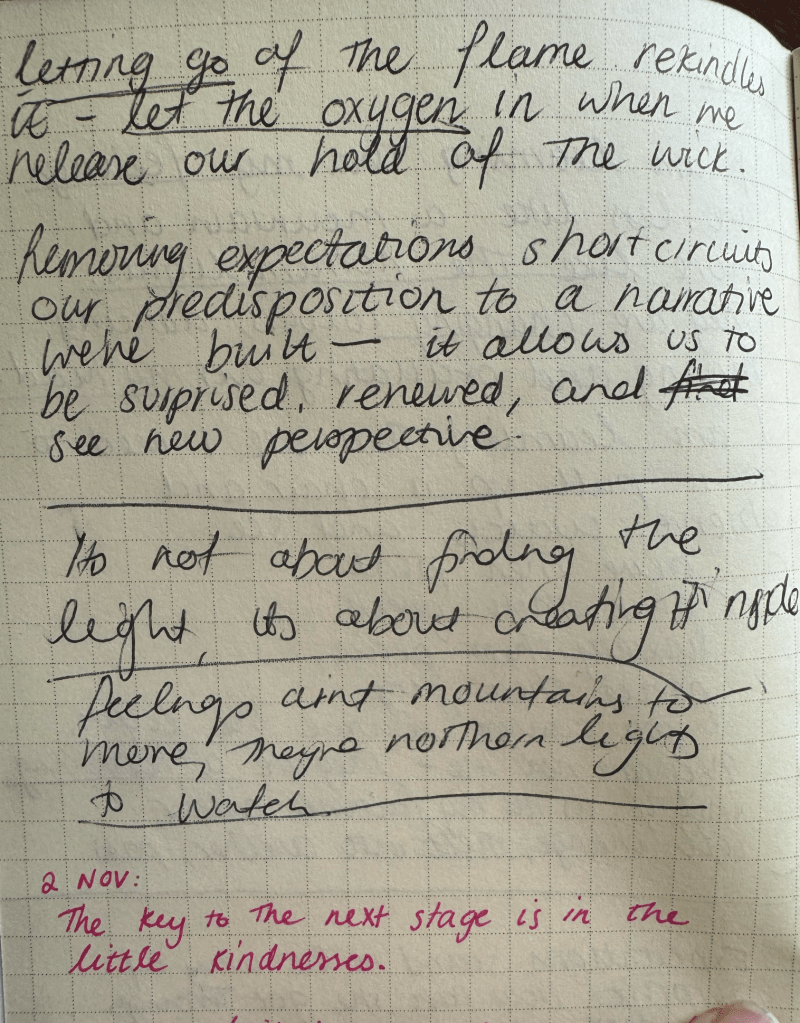 letting go of the flame rekindles
it - let the oxygen in when we
release our hold of the wick.
Removing expectations short circuits
our predisposition to a narrative
we're built — it allows us to
be surprised, renewed, and find
see new perspective.
Its not about finding the
light, its about creating it inside
feelings aint mountains to
move, theyre northern lights
to watch.
2 NOV:
The key to the next stage is in the
little kindnesses.